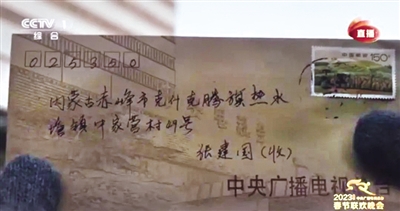 CCTV 1
综合
直播
025350
150
内蒙古赤峰市克什克腾旗热水
塘镇叶家营村 号
张建国(收)
中央广播电视 台
2023
春节联欢晚会